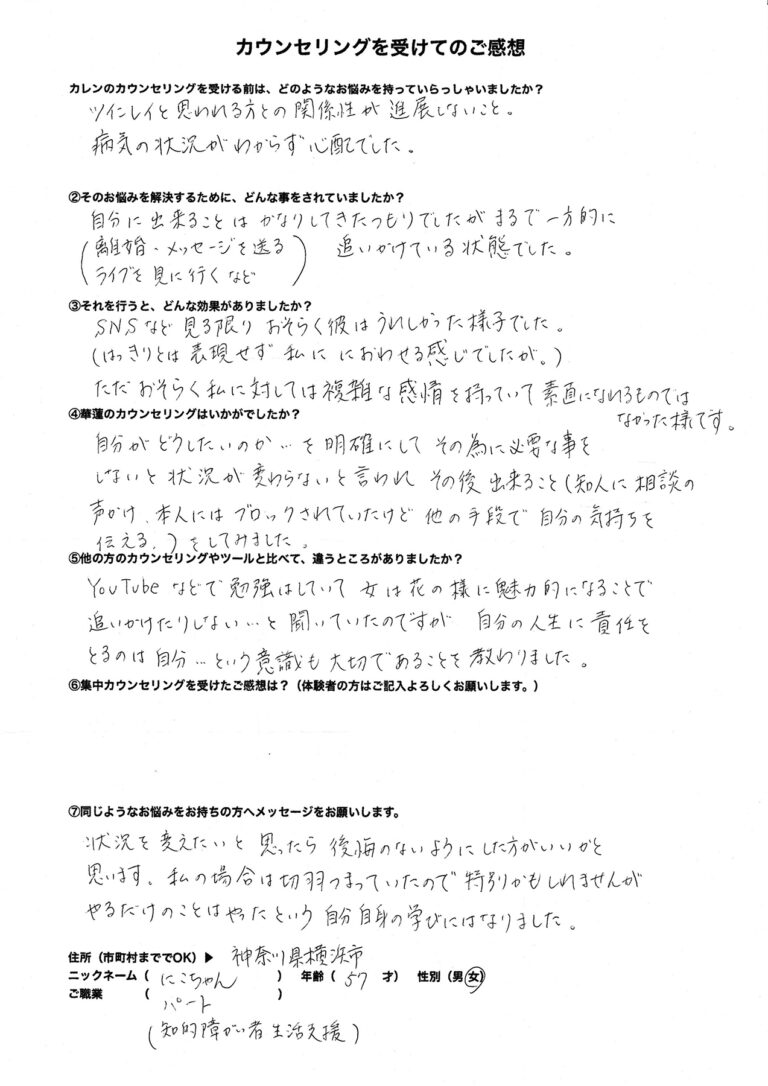 カウンセリングを受けてのご感想
カレンのカウンセリングを受ける前は、どのようなお悩みを持っていらっしゃいましたか？
ツインレイと思われる方との関係性が進展しないこと。
病気の状況がわからず心配でした。
②そのお悩みを解決するために、どんな事をされていましたか？
自分に出来ることはかなりしてきたつもりでしたがまるで一方的に
（離婚・メッセージを送る 追いかけている状態でした。
ライブを見に行くなど）
③それを行うと、どんな効果がありましたか？
SNSなど見る限りおそらく彼はうれしかった様子でした。
（はっきりとは表現せず私ににおわせる感じでしたが。）
ただおそらく私に対しては複雑な感情を持っていて素直になれるものでは
なかった様です。
④華蓮のカウンセリングはいかがでしたか？
自分がどうしたいのか…を明確にしてその為に必要な事を
しないと状況が変わらないと言われその後出来ること（知人に相談の
声かけ、本人にはブロックされていたけど他の手段で自分の気持ちを
伝える、）をしてみました。
⑤他の方のカウンセリングやツールと比べて、違うところがありましたか？
YouTubeなどで勉強はしていて女は花の様に魅力的になることで
追いかけたりしない…と聞いていたのですが 自分の人生に責任を
とるのは自分…という意識も大切であることを教わりました。
⑥集中カウンセリングを受けたご感想は？（体験者の方はご記入よろしくお願いします。）
⑦同じようなお悩みをお持ちの方へメッセージをお願いします。
状況を変えたいと思ったら後悔のないようにした方がいいかと
思います。私の場合は切羽つまっていたので特別かもしれませんが
やるだけのことはやったという自分自身の学びにはなりました。
住所（市町村まででOK）▶ 神奈川県横浜市
ニックネーム（ にこちゃん ） 年齢（ 57 才） 性別（男・女）
ご職業 （ パート ）
（知的障がい者生活支援）